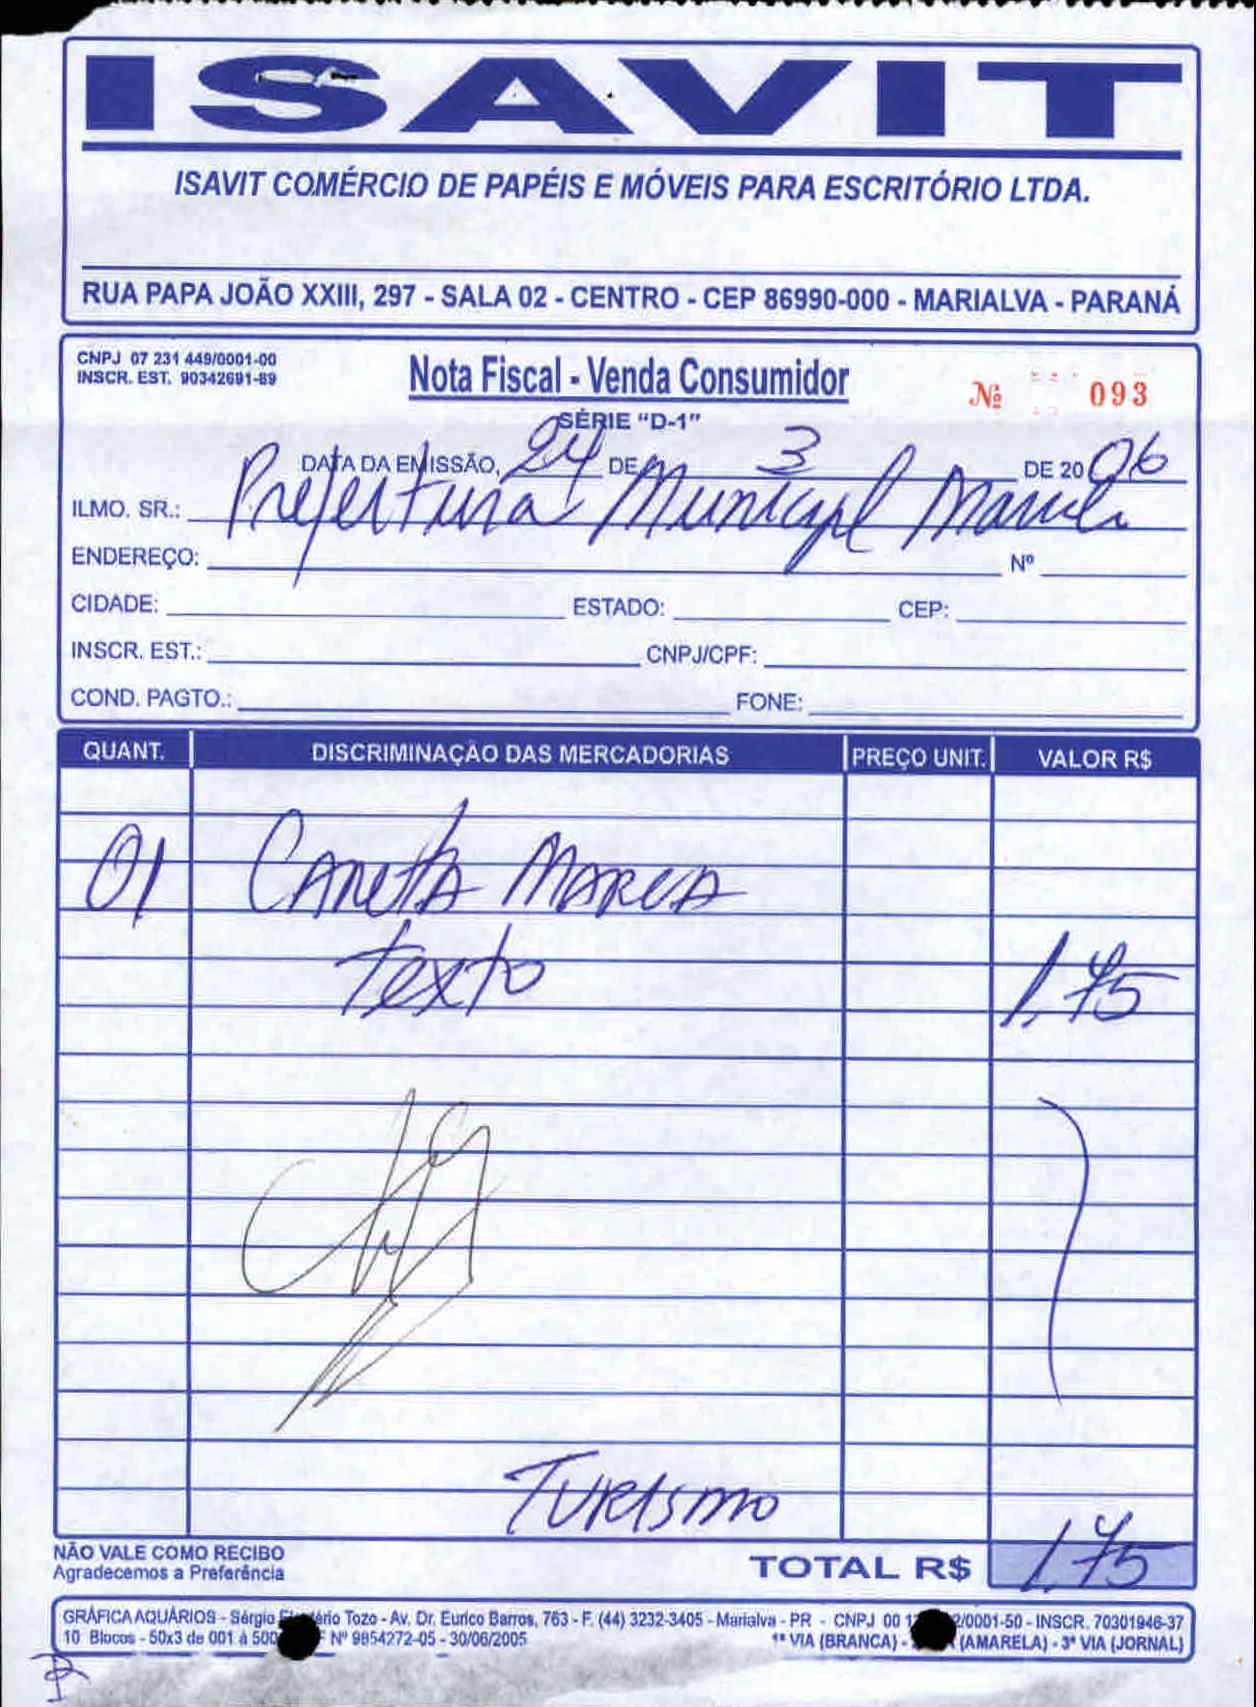 ISAVIT
ISAVIT COMÉRCIO DE PAPÉIS E MÓVEIS PARA ESCRITÓRIO LTDA.
RUA PAPA JOÃO XXIII, 297 - SALA 02 - CENTRO - CEP 86990-000 - MARIALVA - PARANÁ
CNPJ 07 231 449/0001-00
INSCR. EST. 90342691-89
Nota Fiscal - Venda Consumidor
Nº 093
SÉRIE "D-1"
DATA DA EMISSÃO, 24 DE 3 DE 2006
ILMO. SR.: Prefeitura Municipal
ENDEREÇO: Nº
CIDADE: ESTADO: CEP:
INSCR. EST.: CNPJ/CPF:
COND. PAGTO.: FONE:
QUANT. DISCRIMINAÇÃO DAS MERCADORIAS PREÇO UNIT. VALOR R$
01 CANETA MARCA
texto 1,75
TURISMO
NÃO VALE COMO RECIBO
Agradecemos a Preferência
TOTAL R$ 1,75
GRÁFICA AQUÁRIOS - Sérgio Tozo - Av. Dr. Eurico Barros, 763 - F. (44) 3232-3405 - Marialva - PR - CNPJ 00 /0001-50 - INSCR. 70301946-37
10 Blocos - 50x3 de 001 à 500 Nº 9854272-05 - 30/06/2005 1ª VIA (BRANCA) - (AMARELA) - 3ª VIA (JORNAL)